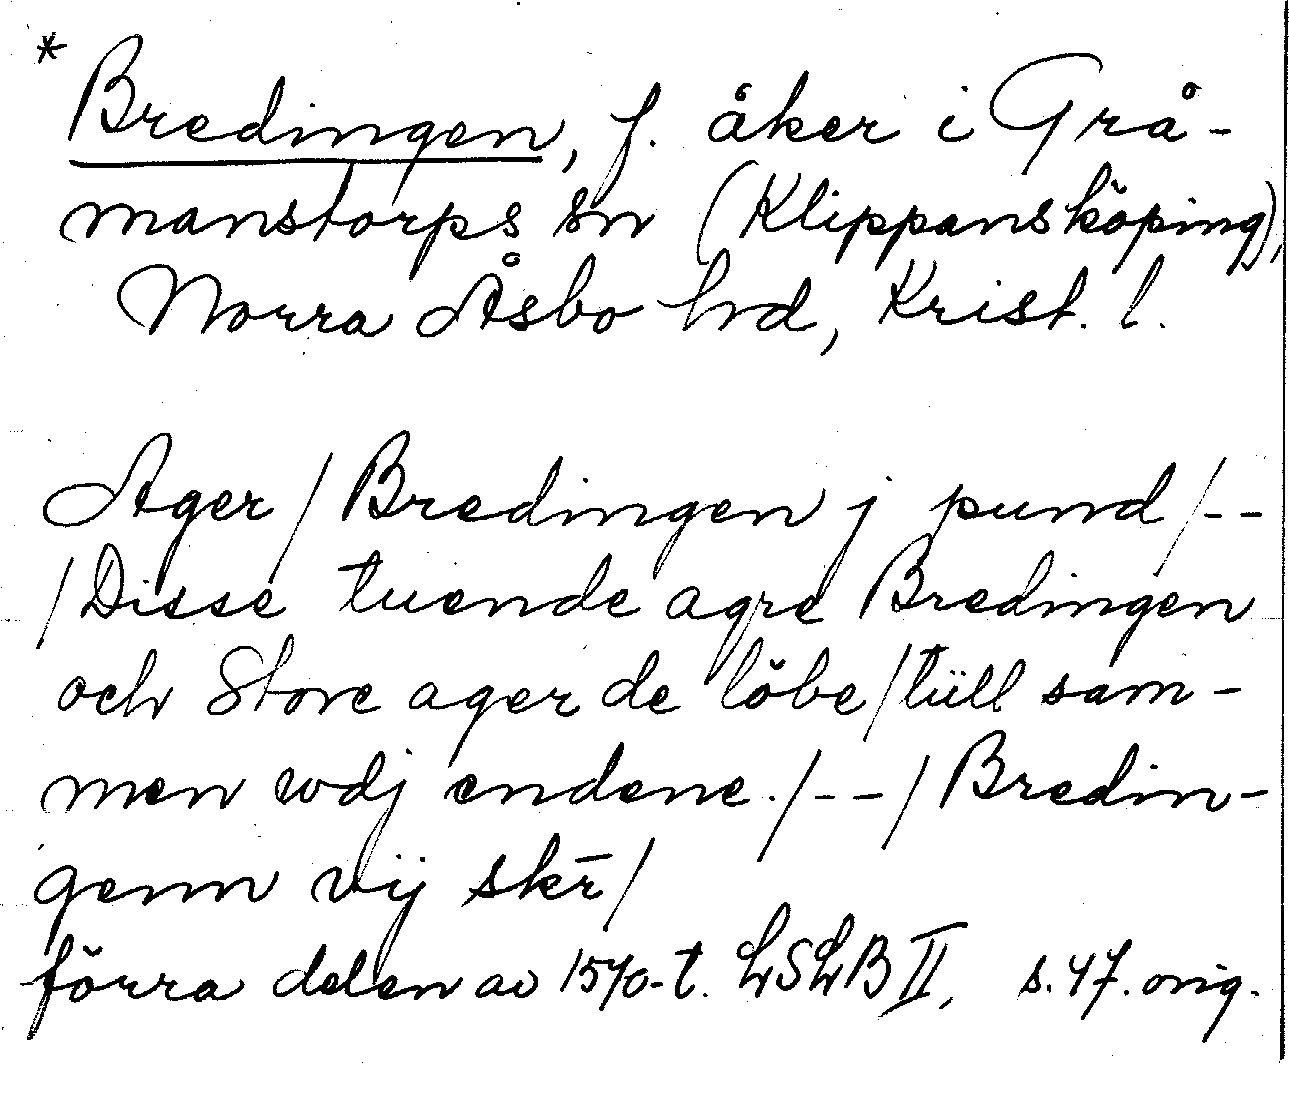 * Bredingen, f. åker i Grå-
manstorps sn (Klippans köping),
Norra Åsbo hd, Krist. l.
Ager / Bredingen j pund /--
/ Disse tuende agre Bredingen
och Store ager de löbe / tüll sam-
men wdj endene. /--/ Bredin-
genn vij skr̄ /
förra delen av 1570-t. LSLB II, s. 47. orig.